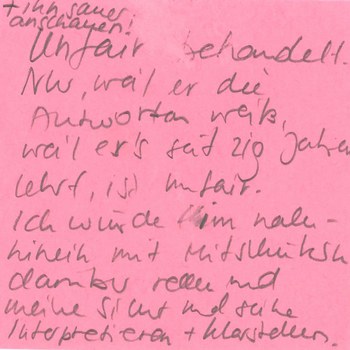 + ihn sauer
anschauen!
Unfair behandelt.
Nur, weil er die
Antworten weiß,
weil er's seit zig Jahren
lehrt, ist unfair.
Ich würde im nach-
hinein mit Mitschülern
darüber reden und
meine Sicht und seine
Interpretieren + klarstellen.